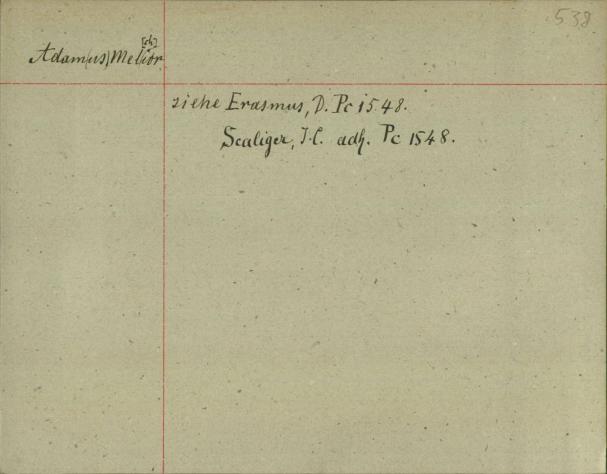 538
[ch]
Adam(us) Melior
siehe Erasmus, D. Pc 1548.
Scaliger, J.C. adh. Pc 1548.